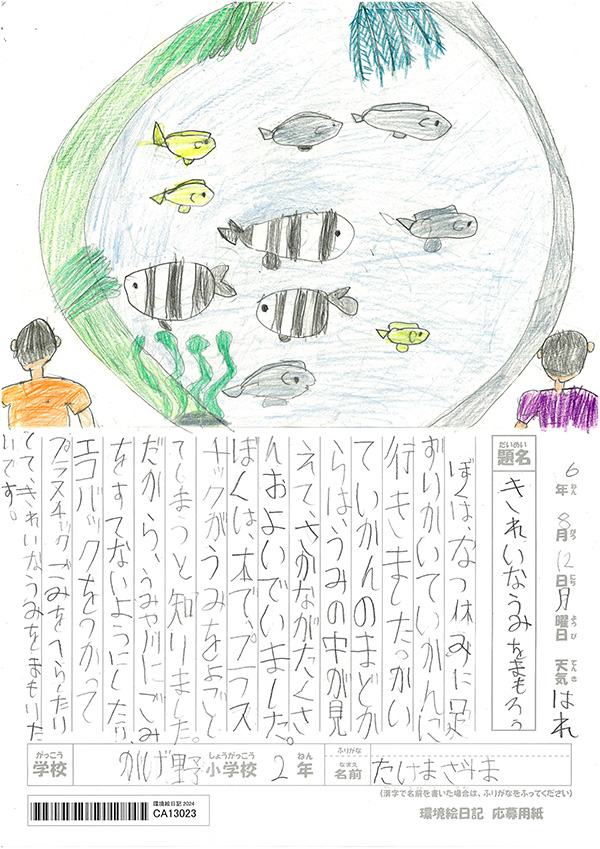 6年 8月 12日 月曜日 天気 はれ
ねん がつ にち ようび てんき
だいめい
題名 きれいなうみをまもろう
ぼくは、なつ休みに足
ずりかいていかんに
行きました。かい
ていかんのまどか
らは、うみの中が見
えて、さかながたくさ
んおよいでいました。
ぼくは、本で、プラス
チックがうみをよごし
てしまうと知りました。
だから、うみや川にごみ
をすてないようにしたり、
エコバックをつかって
プラスチックごみをへらしたり
して、きれいなうみをまもりた
いです。
がっこう しょうがっこう ねん
学校 かげ野 小学校 2年
ふりがな
なまえ
名前
(漢字で名前を書いた場合は、ふりがなをふってください)
環境絵日記 2024
CA13023
環境絵日記 応募用紙